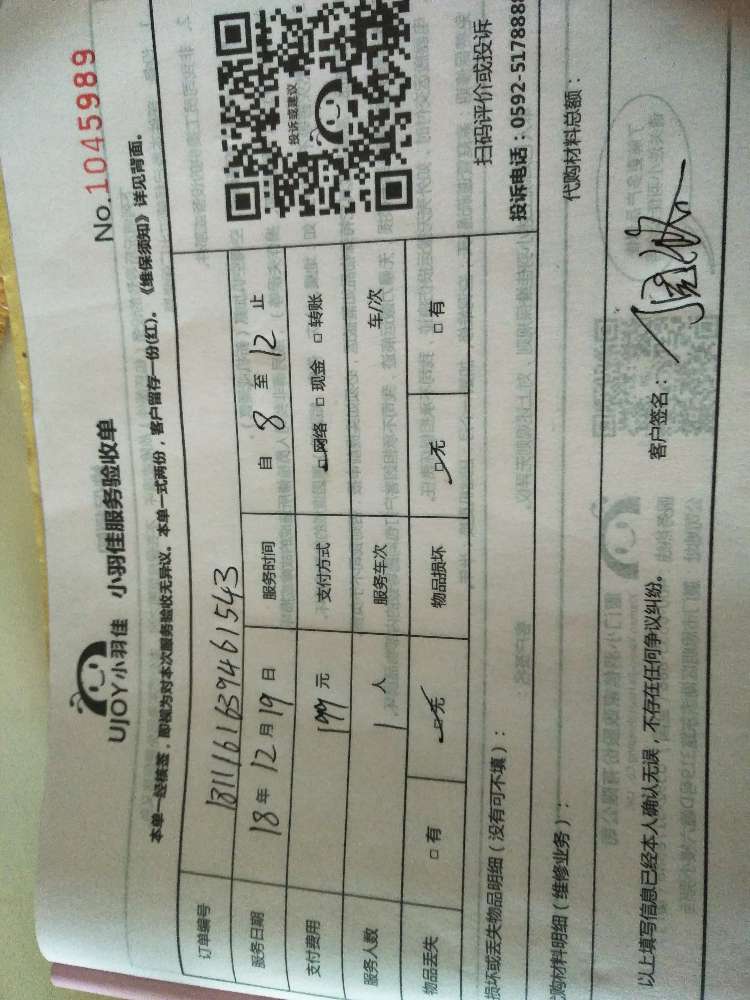 No.1045989
UJOY小羽佳 小羽佳服务验收单
本单一经核签，即视为对本次服务验收无异议。本单一式两份，客户留存一份(红)。《维保须知》详见背面。
订单编号 1811161639461543
服务日期 18年12月19日 服务时间 自 8 至 12 止
支付费用 199元 支付方式 ☑网络 □现金 □转账
服务人数 1人 服务车次 车/次
物品丢失 □有 ☑无 物品损坏 ☑无 □有
投诉或建议
扫码评价或投诉
投诉电话：0592-5178888
损坏或丢失物品明细（没有可不填）：
购材料明细（维修业务）： 代购材料总额：
以上填写信息已经本人确认无误，不存在任何争议纠纷。 客户签名：